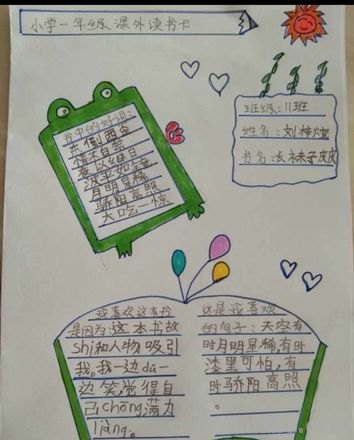 小学一年级课外读书卡
班级:11班
姓名:刘梓煊
书名:长袜子皮皮
书中的好词:
东倒西歪
情不自禁
夜以继日
波平如镜
月明星稀
骄阳高照
大吃一惊
我喜欢这本书
是因为:这本书故
shi和人物吸引
我。我一边da-
边笑,觉得自
己chōng满力
liàng。
这是我喜欢
的句子:天空有
时月明星稀,有时
漆黑可怕,有
时骄阳高照
。